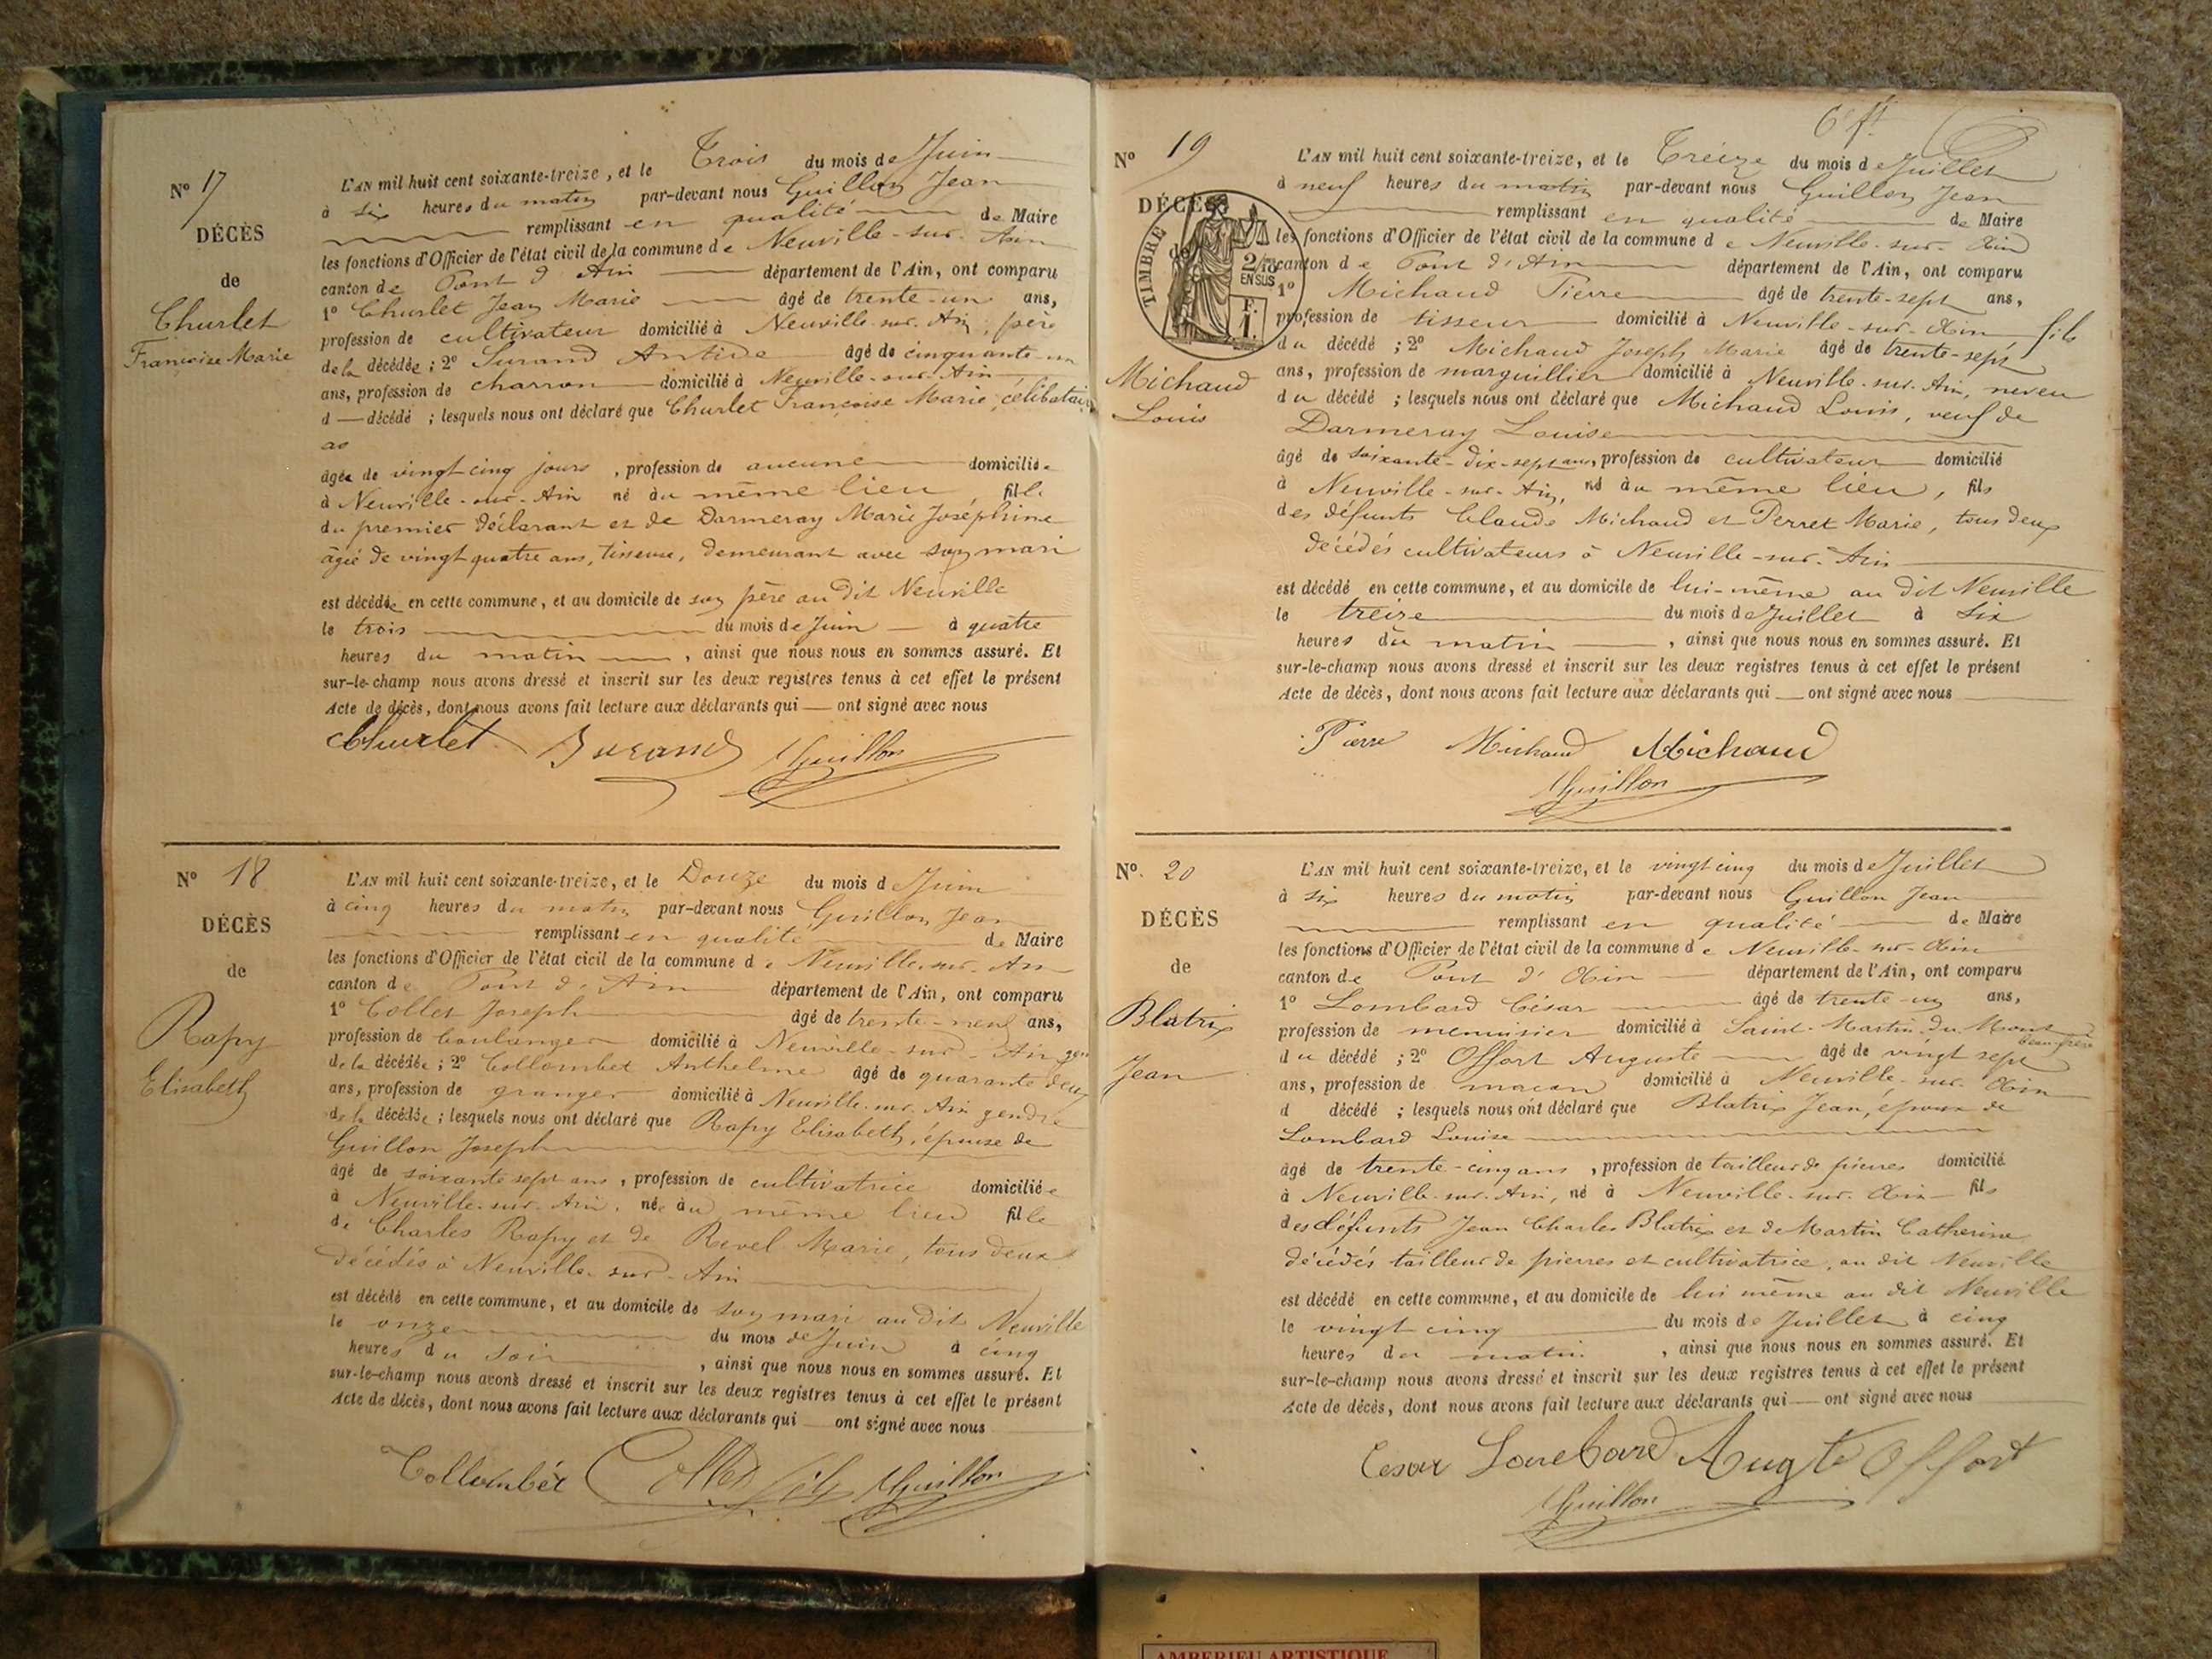 N° 17
DÉCÈS
de
Churlet
Françoise Marie
L'AN mil huit cent soixante-treize, et le Trois du mois de Juin
à six heures du matin par-devant nous Guillon Jean
remplissant en qualité de Maire
les fonctions d'Officier de l'état civil de la commune de Neuville-sur-Ain
canton de Pont d'Ain département de l'Ain, ont comparu
1° Churlet Jean Marie âgé de trente-un ans,
profession de cultivateur domicilié à Neuville-sur-Ain, père
de la décédée ; 2° Durand Antide âgé de cinquante-un
ans, profession de charron domicilié à Neuville-sur-Ain
d décédé ; lesquels nous ont déclaré que Churlet Françoise Marie, célibataire
âgée de vingt cinq jours, profession de aucune domiciliée
à Neuville-sur-Ain né au même lieu, fille
du premier déclarant et de Darmeray Marie Joséphine
âgée de vingt quatre ans, tisseuse, demeurant avec son mari
est décédée en cette commune, et au domicile de son père au dit Neuville
le trois du mois de Juin à quatre
heures du matin, ainsi que nous nous en sommes assuré. Et
sur-le-champ nous avons dressé et inscrit sur les deux registres tenus à cet effet le présent
Acte de décès, dont nous avons fait lecture aux déclarants qui ont signé avec nous
Churlet Durand Guillon
N° 18
DÉCÈS
de
Rapy
Elisabeth
L'AN mil huit cent soixante-treize, et le Douze du mois de Juin
à cinq heures du matin par-devant nous Guillon Jean
remplissant en qualité de Maire
les fonctions d'Officier de l'état civil de la commune de Neuville-sur-Ain
canton de Pont d'Ain département de l'Ain, ont comparu
1° Collet Joseph âgé de trente-neuf ans,
profession de boulanger domicilié à Neuville-sur-Ain gen
de la décédée ; 2° Collombet Anthelme âgé de quarante deux
ans, profession de granger domicilié à Neuville-sur-Ain gendre
de la décédée ; lesquels nous ont déclaré que Rapy Elisabeth, épouse de
Guillon Joseph
âgé de soixante sept ans, profession de cultivatrice domiciliée
à Neuville-sur-Ain, née au même lieu fille
de Charles Rapy et de Revel Marie, tous deux
décédés à Neuville-sur-Ain
est décédé en cette commune, et au domicile de son mari au dit Neuville
le onze du mois de Juin à cinq
heures du soir, ainsi que nous nous en sommes assuré. Et
sur-le-champ nous avons dressé et inscrit sur les deux registres tenus à cet effet le présent
Acte de décès, dont nous avons fait lecture aux déclarants qui ont signé avec nous
Collombet Collet fils Guillon
N° 19
DÉCÈS
de
TIMBRE
2/10
EN SUS
F.
1.
Michaud
Louis
L'AN mil huit cent soixante-treize, et le Treize du mois de Juillet
à neuf heures du matin par-devant nous Guillon Jean
remplissant en qualité de Maire
les fonctions d'Officier de l'état civil de la commune de Neuville-sur-Ain
canton de Pont d'Ain département de l'Ain, ont comparu
1° Michaud Pierre âgé de trente-sept ans,
profession de tisseur domicilié à Neuville-sur-Ain fils
du décédé ; 2° Michaud Joseph Marie âgé de trente-sept
ans, profession de marguillier domicilié à Neuville-sur-Ain, neveu
du décédé ; lesquels nous ont déclaré que Michaud Louis, veuf de
Darmeray Louise
âgé de soixante-dix-sept ans, profession de cultivateur domicilié
à Neuville-sur-Ain, né au même lieu, fils
des défunts Claude Michaud et Perret Marie, tous deux
décédés cultivateurs à Neuville-sur-Ain
est décédé en cette commune, et au domicile de lui-même au dit Neuville
le treize du mois de Juillet à six
heures du matin, ainsi que nous nous en sommes assuré. Et
sur-le-champ nous avons dressé et inscrit sur les deux registres tenus à cet effet le présent
Acte de décès, dont nous avons fait lecture aux déclarants qui ont signé avec nous
Pierre Michaud Michaud
Guillon
N° 20
DÉCÈS
de
Blatrix
Jean
L'AN mil huit cent soixante-treize, et le vingt cinq du mois de Juillet
à six heures du matin par-devant nous Guillon Jean
remplissant en qualité de Maire
les fonctions d'Officier de l'état civil de la commune de Neuville-sur-Ain
canton de Pont d'Ain département de l'Ain, ont comparu
1° Lombard César âgé de trente-un ans,
profession de menuisier domicilié à Saint-Martin-du-Mont beau-frère
du décédé ; 2° Offort Auguste âgé de vingt sept
ans, profession de maçon domicilié à Neuville-sur-Ain
d décédé ; lesquels nous ont déclaré que Blatrix Jean, époux de
Lombard Louise
âgé de trente-cinq ans, profession de tailleur de pierres domicilié
à Neuville-sur-Ain, né à Neuville-sur-Ain fils
des défunts Jean Charles Blatrix et de Martin Catherine
décédés tailleur de pierres et cultivatrice, au dit Neuville
est décédé en cette commune, et au domicile de lui même au dit Neuville
le vingt cinq du mois de Juillet à cinq
heures du matin, ainsi que nous nous en sommes assuré. Et
sur-le-champ nous avons dressé et inscrit sur les deux registres tenus à cet effet le présent
Acte de décès, dont nous avons fait lecture aux déclarants qui ont signé avec nous
Cesar Lombard Augte Offort
Guillon
AMBERIEU ARTISTIQUE